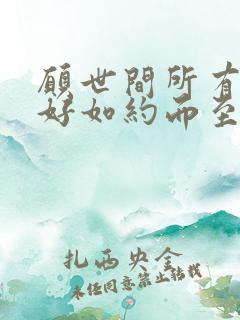 願世間所有
好如約而至
扎西央金
未經同意禁止轉載